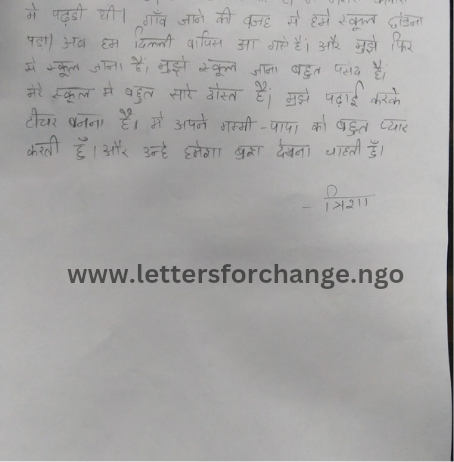 मे पढ़ती थी। गाँव जाने की वजह से हमे स्कूल छोड़ना
पड़ा। अब हम दिल्ली वापिस आ गऐ है। और मुझे फिर
से स्कूल जाना है। मुझे स्कूल जाना बहुत पसंद है।
मेरे स्कूल मे बहुत सारे दोस्त है। मुझे पढ़ाई करके
टीचर बनना है। मै अपने मम्मी-पापा को बहुत प्यार
करती हुँ। और उन्हे हमेशा खुश देखना चाहती हुँ।
- त्रिशा
www.lettersforchange.ngo